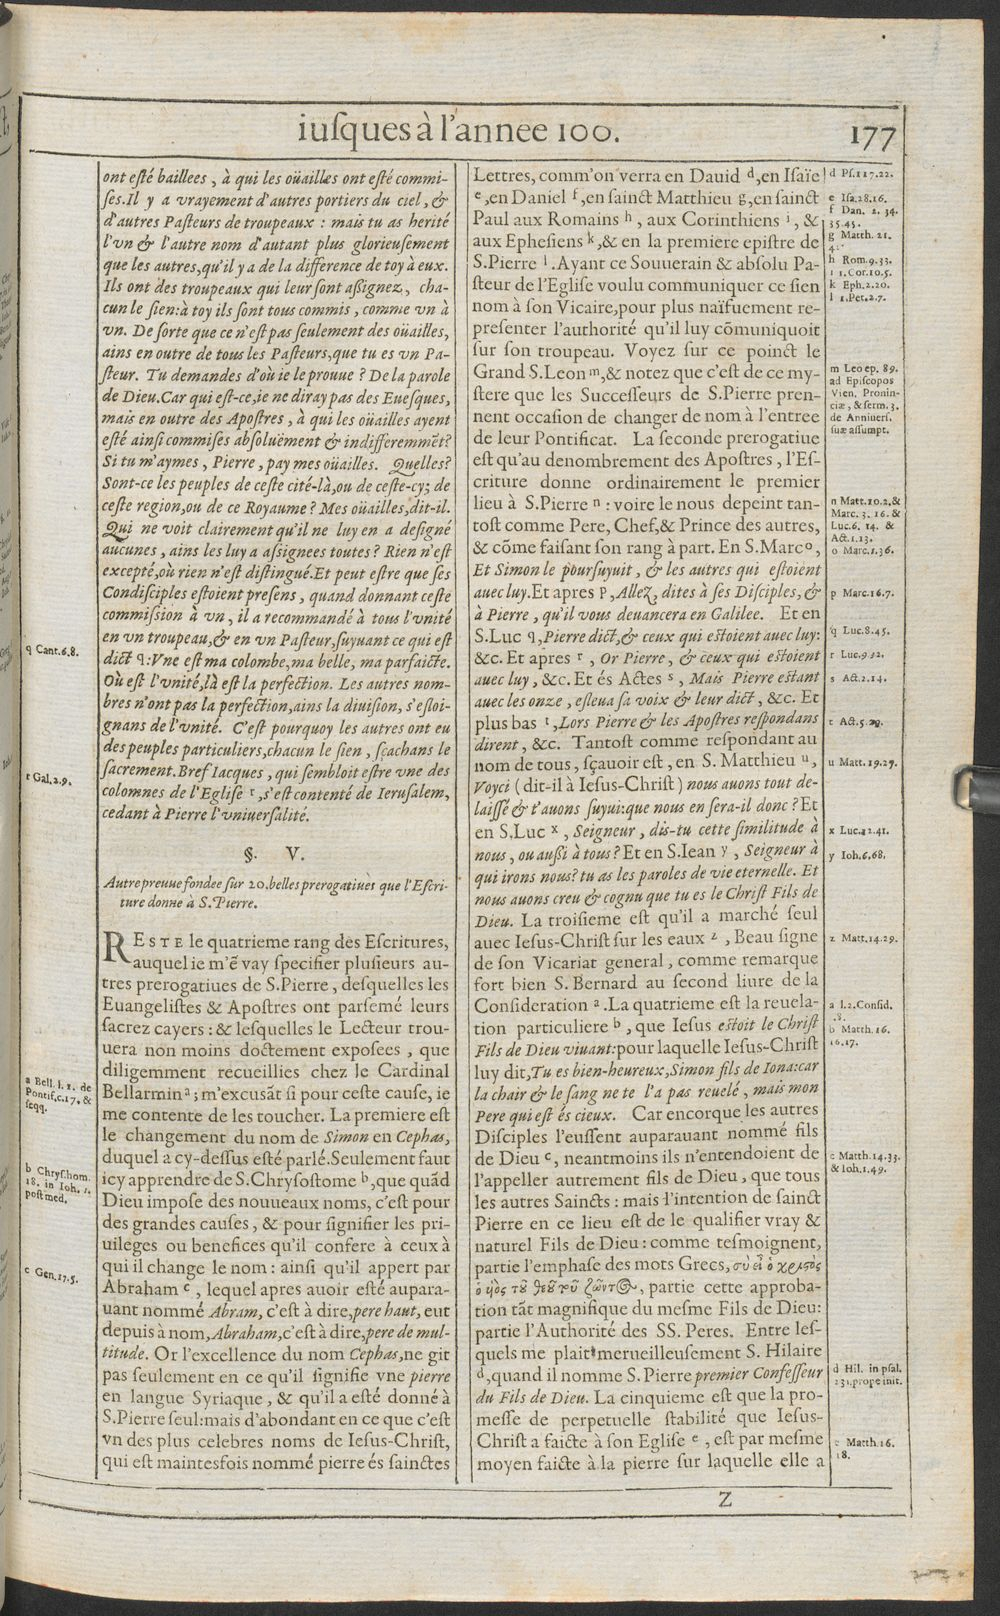 iusques à l'annee 100.
177
ont esté baillees, à qui les oüailles ont esté commi-
ses. Il y a vrayement d'autres portiers du ciel, &
d'autres Pasteurs de troupeaux : mais tu as herité
l'vn & l'autre nom d'autant plus glorieusement
que les autres, qu'il y a de la difference de toy à eux.
Ils ont des troupeaux qui leur sont assignez, cha-
cun le sien: à toy ils sont tous commis, comme vn à
vn. De sorte que ce n'est pas seulement des oüailles,
ains en outre de tous les Pasteurs, que tu es vn Pa-
steur. Tu demandes d'où ie le prouue ? De la parole
de Dieu. Car qui est-ce, ie ne diray pas des Euesques,
mais en outre des Apostres, à qui les oüailles ayent
esté ainsi commises absoluëment & indifferemmēt?
Si tu m'aymes, Pierre, pay mes oüailles. Quelles?
Sont-ce les peuples de ceste cité-là, ou de ceste-cy; de
ceste region, ou de ce Royaume ? Mes oüailles, dit-il.
Qui ne voit clairement qu'il ne luy en a designé
aucunes, ains les luy a assignees toutes ? Rien n'est
excepté, où rien n'est distingué. Et peut estre que ses
Condisciples estoient presens, quand donnant ceste
commission à vn, il a recommandé à tous l'vnité
en vn troupeau, & en vn Pasteur, suyuant ce qui est
dict q: Vne est ma colombe, ma belle, ma parfaicte.
Où est l'vnité, là est la perfection. Les autres nom-
bres n'ont pas la perfection, ains la diuision, s'esloi-
gnans de l'vnité. C'est pourquoy les autres ont eu
des peuples particuliers, chacun le sien, sçachans le
sacrement. Bref Iacques, qui sembloit estre vne des
colomnes de l'Eglise r, s'est contenté de Ierusalem,
cedant à Pierre l'vniuersalité.
§. V.
Autre preuue fondee sur 20. belles prerogatiues que l'Escri-
ture donne à S. Pierre.
RESTE le quatrieme rang des Escritures,
auquel ie m'ē vay specifier plusieurs au-
tres prerogatiues de S. Pierre, desquelles les
Euangelistes & Apostres ont parsemé leurs
sacrez cayers : & lesquelles le Lecteur trou-
uera non moins doctement exposees, que
diligemment recueillies chez le Cardinal
Bellarmin a; m'excusāt si pour ceste cause, ie
me contente de les toucher. La premiere est
le changement du nom de Simon en Cephas,
duquel a cy-dessus esté parlé. Seulement faut
icy apprendre de S. Chrysostome b, que quād
Dieu impose des nouueaux noms, c'est pour
des grandes causes, & pour signifier les pri-
uileges ou benefices qu'il confere à ceux à
qui il change le nom : ainsi qu'il appert par
Abraham c, lequel apres auoir esté aupara-
uant nommé Abram, c'est à dire, pere haut, eut
depuis à nom, Abraham, c'est à dire, pere de mul-
titude. Or l'excellence du nom Cephas, ne git
pas seulement en ce qu'il signifie vne pierre
en langue Syriaque, & qu'il a esté donné à
S. Pierre seul: mais d'abondant en ce que c'est
vn des plus celebres noms de Iesus-Christ,
qui est maintesfois nommé pierre és sainctes
q Cant.6.8.
r Gal.2.9.
a Bell. l. 1. de
Pontif. c.17. &
seqq.
b Chrys. hom.
18. in Ioh. 1.
post med.
c Gen.17.5.
Lettres, comm'on verra en Dauid d, en Isaïe
e, en Daniel f, en sainct Matthieu g, en sainct
Paul aux Romains h, aux Corinthiens i, &
aux Ephesiens k, & en la premiere epistre de
S. Pierre l. Ayant ce Souuerain & absolu Pa-
steur de l'Eglise voulu communiquer ce sien
nom à son Vicaire, pour plus naïfuement re-
presenter l'authorité qu'il luy cōmuniquoit
sur son troupeau. Voyez sur ce poinct le
Grand S. Leon m, & notez que c'est de ce my-
stere que les Successeurs de S. Pierre pren-
nent occasion de changer de nom à l'entree
de leur Pontificat. La seconde prerogatiue
est qu'au denombrement des Apostres, l'Es-
criture donne ordinairement le premier
lieu à S. Pierre n : voire le nous depeint tan-
tost comme Pere, Chef, & Prince des autres,
& cōme faisant son rang à part. En S. Marc o,
Et Simon le poursuyuit, & les autres qui estoient
auec luy. Et apres p, Allez, dites à ses Disciples, &
à Pierre, qu'il vous deuancera en Galilee. Et en
S. Luc q, Pierre dict, & ceux qui estoient auec luy:
&c. Et apres r, Or Pierre, & ceux qui estoient
auec luy, &c. Et és Actes s, Mais Pierre estant
auec les onze, esleua sa voix & leur dict, &c. Et
plus bas t, Lors Pierre & les Apostres respondans
dirent, &c. Tantost comme respondant au
nom de tous, sçauoir est, en S. Matthieu u,
Voyci (dit-il à Iesus-Christ) nous auons tout de-
laissé & t'auons suyui: que nous en sera-il donc ? Et
en S. Luc x, Seigneur, dis-tu cette similitude à
nous, ou aussi à tous ? Et en S. Iean y, Seigneur à
qui irons nous? tu as les paroles de vie eternelle. Et
nous auons creu & cognu que tu es le Christ Fils de
Dieu. La troisieme est qu'il a marché seul
auec Iesus-Christ sur les eaux z, Beau signe
de son Vicariat general, comme remarque
fort bien S. Bernard au second liure de la
Consideration a. La quatrieme est la reuela-
tion particuliere b, que Iesus estoit le Christ
Fils de Dieu viuant: pour laquelle Iesus-Christ
luy dit, Tu es bien-heureux, Simon fils de Iona: car
la chair & le sang ne te l'a pas reuelé, mais mon
Pere qui est és cieux. Car encorque les autres
Disciples l'eussent auparauant nommé fils
de Dieu c, neantmoins ils n'entendoient de
l'appeller autrement fils de Dieu, que tous
les autres Saincts : mais l'intention de sainct
Pierre en ce lieu est de le qualifier vray &
naturel Fils de Dieu : comme tesmoignent,
partie l'emphase des mots Grecs, σὺ εἶ ὁ χριστὸς
ὁ υἱὸς τοῦ θεοῦ τοῦ ζῶντος, partie cette approba-
tion tāt magnifique du mesme Fils de Dieu:
partie l'Authorité des SS. Peres. Entre les-
quels me plait merueilleusement S. Hilaire
d, quand il nomme S. Pierre premier Confesseur
du Fils de Dieu. La cinquieme est que la pro-
messe de perpetuelle stabilité que Iesus-
Christ a faicte à son Eglise e, est par mesme
moyen faicte à la pierre sur laquelle elle a
d Ps.117.22.
e Isa.28.16.
f Dan. 2. 34.
35.45.
g Matth. 21.
h Rom.9.33.
i 1.Cor.10.5.
k Eph.2.20.
l 1.Pet.2.7.
m Leo ep. 89.
ad Episcopos
Vien. Prouin-
ciæ, & serm. 3.
de Anniuers.
suæ assumpt.
n Matt.10.2.&
Marc. 3. 16. &
Luc.6. 14. &
Act.1.13.
o Marc.1.36.
p Marc.16.7.
q Luc.8.45.
r Luc.9.32.
s Act.2.14.
t Act.5.29.
u Matt.19.27.
x Luc.12.41.
y Ioh.6.68.
z Matt.14.29.
a l.2. Consid.
.8.
b Matth.16.
16.17.
c Matth.14.33.
& Ioh.1.49.
d Hil. in psal.
131. prope init.
e Matth.16.
18.
Z